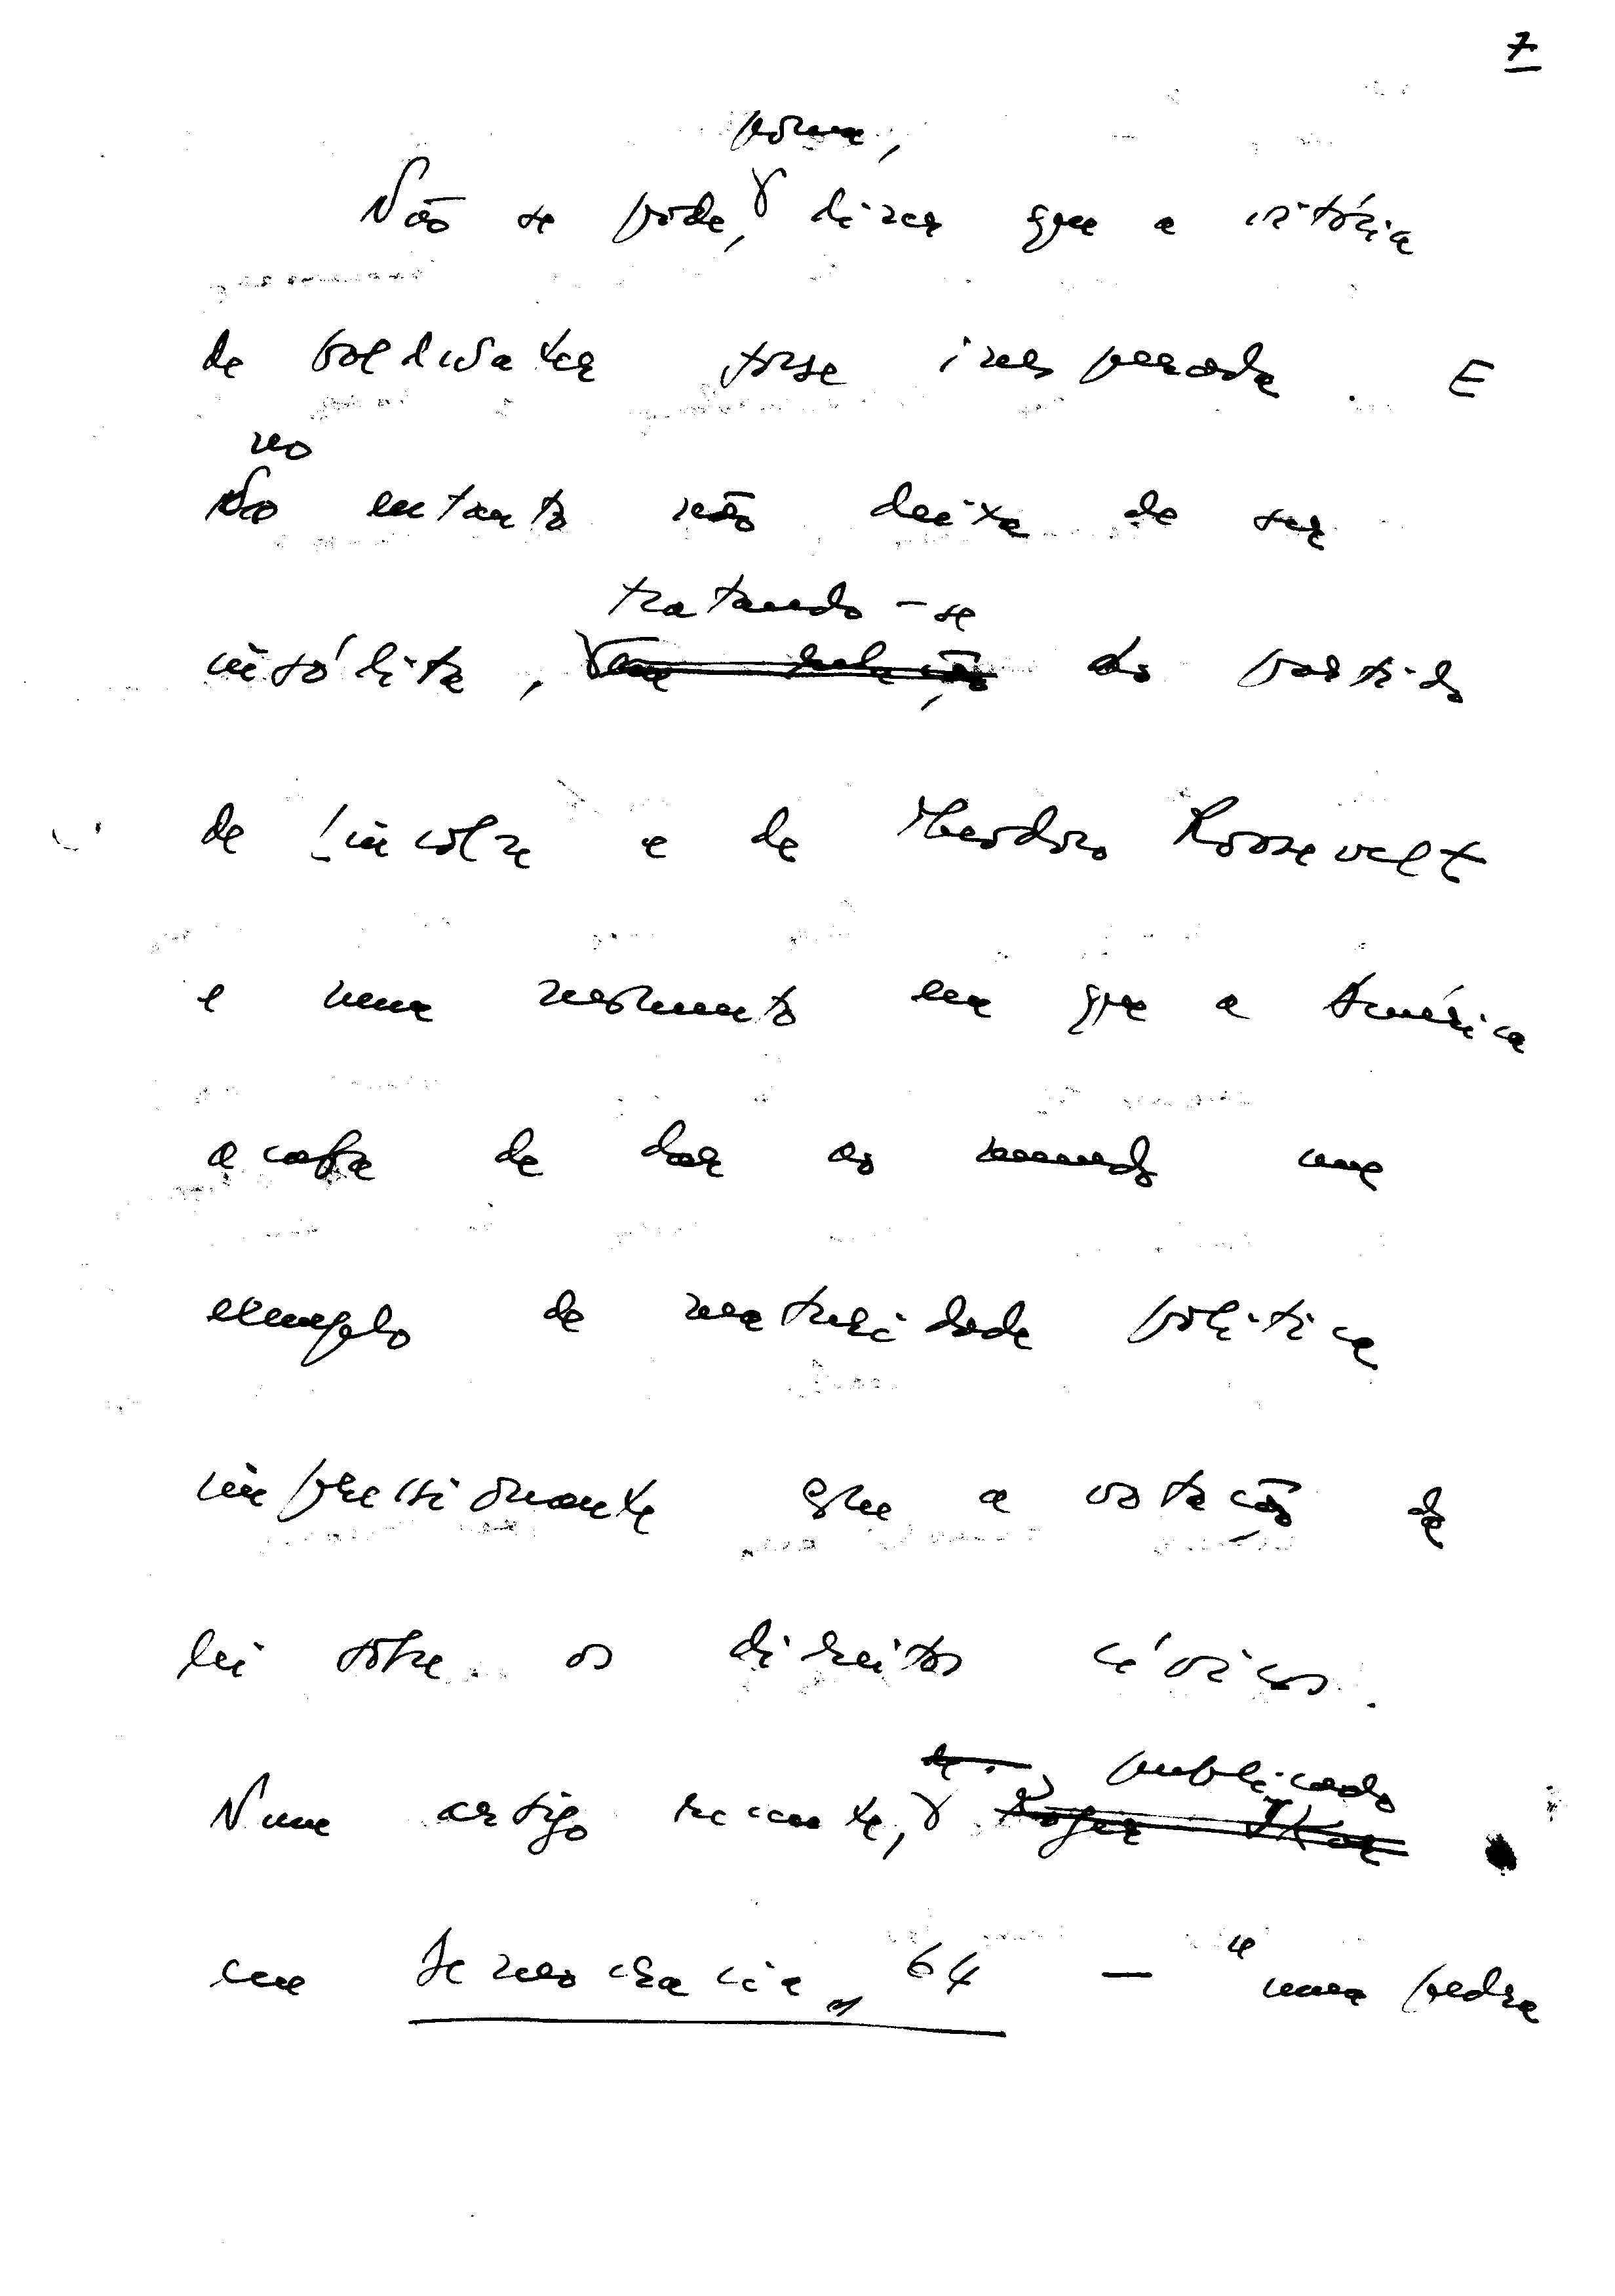 7
porém,
Não se pode, dizer que a vitória
de Goldwater fosse inesperada. E
no
No entanto não deixa de ser
tratando-se
insólita, em relação do partido
de Lincoln e de Theodoro Roosevelt
e num momento em que a América
acaba de dar ao mundo um
exemplo de maturidade política
impressionante que a votação da
lei sobre os direitos cívicos.
publicado
Num artigo recente, Roger Ikor
em Democracia 64 — "uma pedra